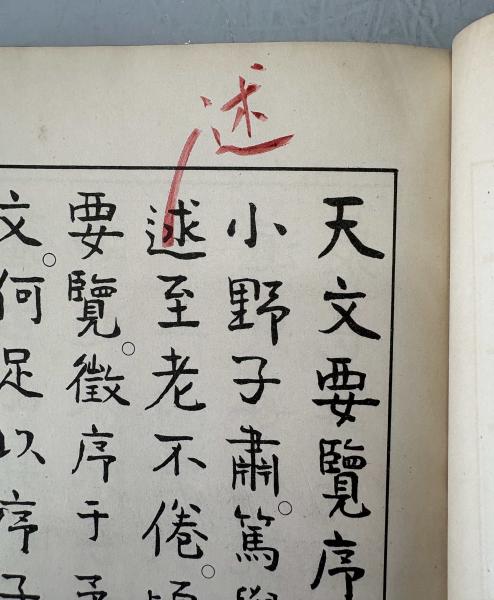 述
天文要覽序
小野子肅。篤學
逑至老不倦。
要覽。徵序于
文。何足以序子